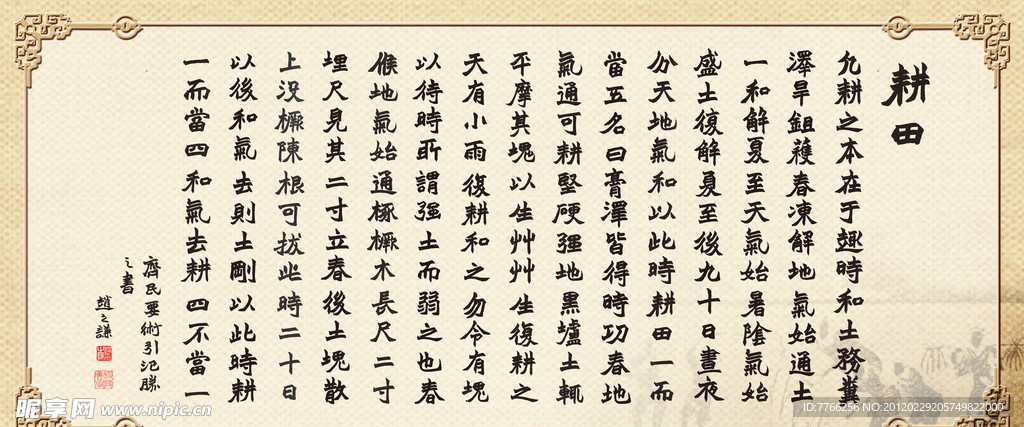 耕田
允耕之本在于趣時和土務糞
澤旱鉏穫春凍解地氣始通土
一和解夏至天氣始暑陰氣始
盛土復解夏至後九十日晝夜
分天地氣和以此時耕田一而
當五名曰膏澤皆得時功春地
氣通可耕堅硬强地黑壚土輒
平摩其塊以生艸艸生復耕之
天有小雨復耕和之勿令有塊
以待時所謂强土而弱之也春
候地氣始通椓橛木長尺二寸
埋尺見其二寸立春後土塊散
上没橛陳根可拔此時二十日
以後和氣去則土剛以此時耕
一而當四和氣去耕四不當一
齊民要術引氾勝
之書
趙之謙
昵享网 www.nipic.cn
ID:7766256 NO:20120229205749822000